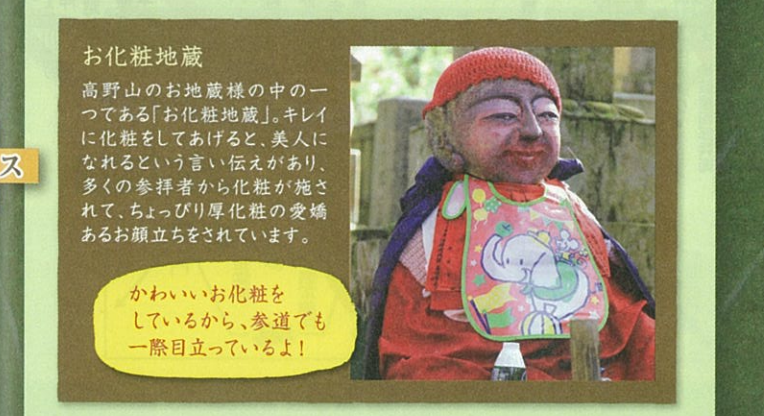 お化粧地蔵
高野山のお地蔵様の中の一
つである「お化粧地蔵」。キレイ
に化粧をしてあげると、美人に
なれるという言い伝えがあり、
多くの参拝者から化粧が施さ
れて、ちょっぴり厚化粧の愛嬌
あるお顔立ちをされています。
かわいいお化粧を
しているから、参道でも
一際目立っているよ!
ス